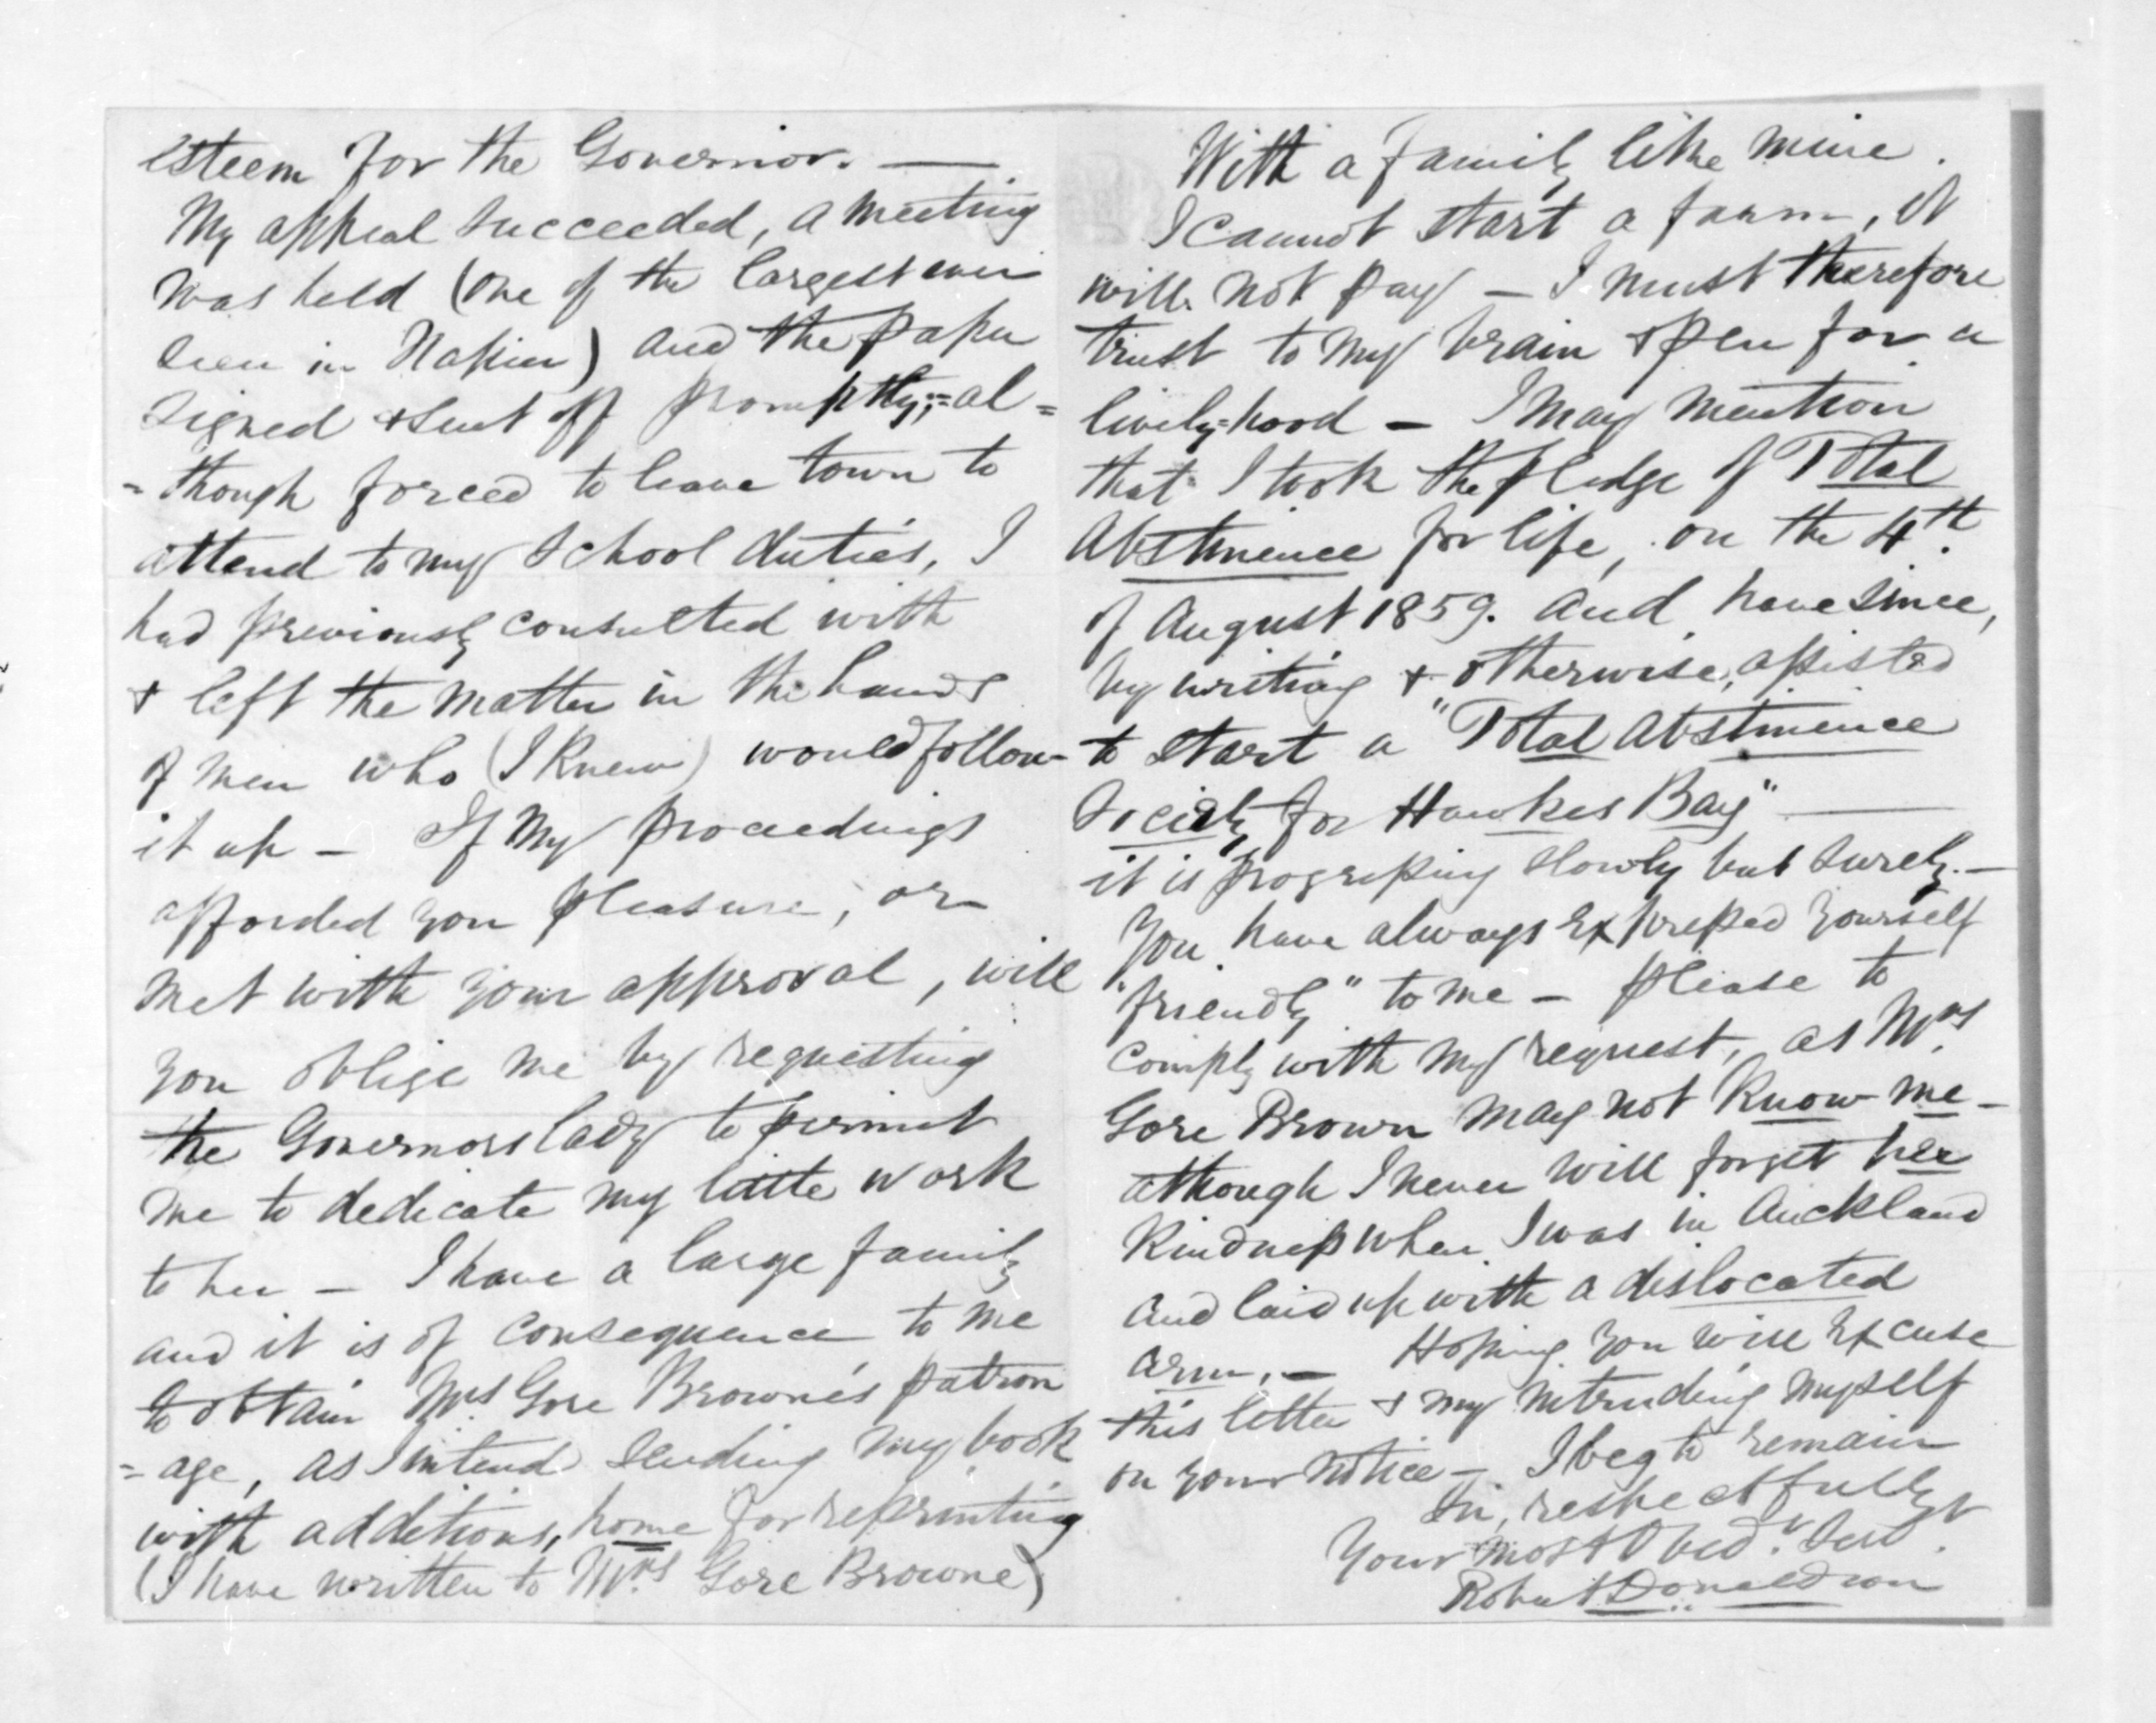 esteem for the Governor. —
My appeal succeeded, a meeting
was held (one of the largest ever
seen in Napier) and the paper
signed & sent off promptly; - al =
= though forced to leave town to
attend to my School duties, I
had previously consulted with
& left the matter in the hands
of men who (I knew) would follow
it up — If my proceedings
afforded you pleasure, or
met with your approval, will
you oblige me by requesting
the Governors lady to permit
me to dedicate my little work
to her — I have a large family
and it is of consequence to me
to obtain Mrs Gore Browne's patron
= age, as I intend sending my book
with additions, home for reprinting
(I have written to Mrs Gore Browne)
With a family like mine.
I cannot start a farm, it
will not pay — I must therefore
trust to my brain & pen for a
lively=hood — I may mention
that I took the pledge of Total
Abstinence for life, on the 4th
of August 1859. and have since,
by writing & otherwise, assisted
to start a "Total Abstinence
Society for Hawkes Bay" —
it is progressing slowly but surely. —
You have always expressed yourself
"friendly" to me — please to
comply with my request, as Mrs
Gore Brown may not know me —
although I never will forget her
kindness when I was in Auckland
and laid up with a dislocated
arm. — Hoping you will excuse
this letter & my intruding myself
on your notice — I beg to remain
Sir, respectfully
Your most Obedt. Servt.
Robert Donaldson